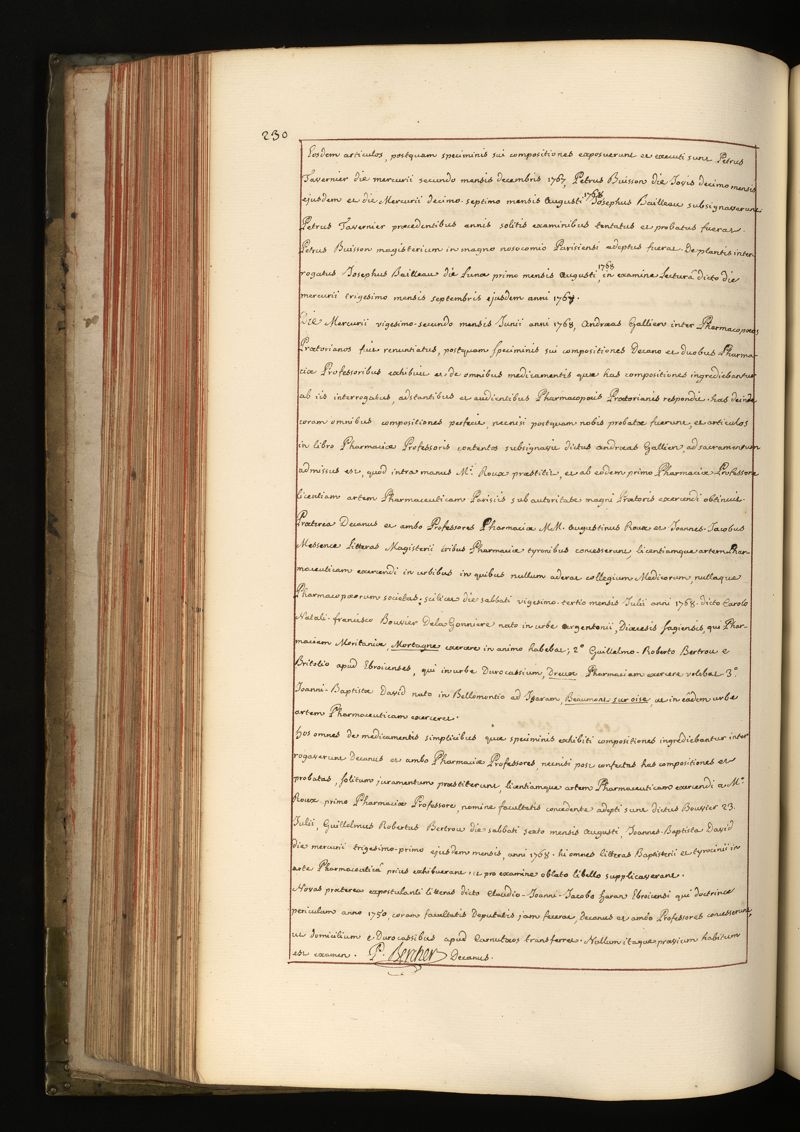 230
Eosdem articulos, postquam speciminis sui compositiones exposuerunt et executi sunt Petrus
Tavernier die mercurii secundo mensis decembris 1767, Petrus Buisson die Jovis decimo mensis
ejusdem et die Mercurii decimo-septimo mensis augusti 1768 Josephus Bailleau subsignaverunt
Petrus Tavernier præcedentibus annis solitis examinibus tentatus et probatus fuerat.
Petrus Buisson magisterium in magno nosocomio Parisiensi adeptus fuerat. De plantis inter-
rogatus Josephus Bailleau die Lunæ primo mensis augusti 1768, in examine Lecturâ dicto die
mercurii trigesimo mensis septembris ejusdem anni 1767.
Die Mercurii vigesimo-secundo mensis Junii anni 1768, Andræas Gallien inter Pharmacopæos
Prætorianos fuit renuntiatus, postquam speciminis sui compositiones Decano et duobus Pharma-
ciæ Professoribus exhibuit et de omnibus medicamentis quæ has compositiones ingrediebantur
ab iis interrogatus, adstantibus et audientibus Pharmacopæis Prætorianis respondit. has deinde
coram omnibus compositiones perfecit, necnisi postquam nobis probatæ fuerunt, et articulos
in libro Pharmaciæ Professoris contentos subsignavit dictus andræas Gallien, ad sacramentum
admissus est, quod intra manus Mi. Roux præstitit, et ab eodem primo Pharmaciæ Professore
licentiam artem Pharmaceuticam Parisiis sub autoritate magni Prætoris exercendi obtinuit.
Præterea Decanus et ambo Professores Pharmaciæ M.M. augustinus Roux et Joannes-Jacobus
Messence litteras Magisterii tribus Pharmaciæ tyronibus concesserunt, licentiamque artem Phar-
maceuticam exercendi in urbibus in quibus nullum aderat collegium Medicorum, nullaque
Pharmacopæorum societas; scilicet die sabbati vigesimo-tertio mensis Julii anni 1768. dicto Carolo
Natali-francisco Bouvier Dela Gonniere nato in urbe argentonii, Diœcesis sagiensis, qui Phar-
maciam Moritaniæ, Mortagne exercere in animo habebat; 2°. Guillelmo-Roberto Bertrou e
Britolio apud Ebroicenses, qui in urbe Durocassium, Dreux Pharmaciam exercere volebat 3°.
Joanni-Baptistæ David nato in Bellomontio ad Isaram, Beaumont sur oise, ut in eâdem urbe
artem Pharmaceuticam exerceret.
hos omnes de medicamentis simplicibus quæ speciminis exhibiti compositiones ingrediebantur inter
rogaverunt Decanus et ambo Pharmaciæ Professores, necnisi post confectas has compositiones et
probatas, solitum juramentum præstiterunt, licentiamque artem Pharmaceuticam exercendi a Mo.
Roux primo Pharmaciæ Professore, nomine facultatis concedente adepti sunt dictus Bouvier 23.
Julii, Guillelmus Robertus Bertrou die sabbati sexto mensis Augusti, Joannes-Baptista David
die mercurii trigesimo-primo ejusdem mensis, anni 1768. hi omnes litteras Baptisterii et tyrocinii in
arte Pharmaceuticâ prius exhibuerant et pro examine oblato libello supplicaverant.
Novas præterea expostulanti litteras dicto Claudio-Joanni-Jacobo haran Ebroicensi qui doctrinæ
periculum anno 1750, coram facultatis Deputatis jam fecerat, Decanus et ambo Professores concesserunt,
ut domicilium e Durocassibus apud Carnutæos transferret. Nullum itaque prævium habitum
est examen. P. Bercher Decanus.